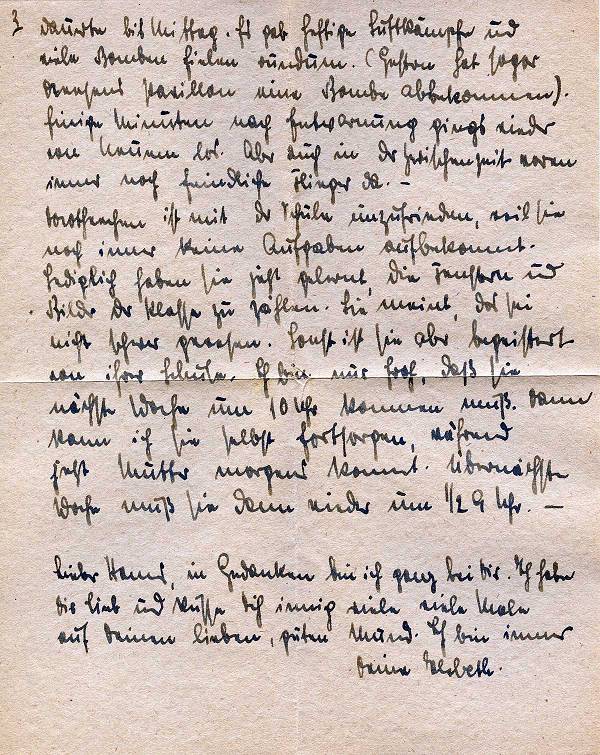 3
dauerte bis Mittag. Es gab heftige Luftkämpfe und
viele Bomben fielen rundum. (Gestern hat sogar
Pavillon eine Bombe abbekommen).
Einige Minuten nach Entwarnung gings wieder
von Neuem los. Aber auch in der Zwischenzeit waren
immer noch feindliche Flieger da. –
Dorotheechen ist mit der Schule unzufrieden, weil sie
noch immer keine Aufgaben aufbekommt.
Lediglich haben sie jetzt gelernt, die Fenstern und
Bilder der Klasse zu zählen. Sie meint, das sei
nicht schwer gewesen. Sonst ist sie aber begeistert
von ihrer Schule. Ich bin nur froh, daß sie
nächste Woche um 10 Uhr kommen muß. Dann
kann ich sie selbst fortsorgen, während
jetzt Mutter morgens kommt. Übernächste
Woche muß sie dann wieder um 1/2 9 Uhr. –
Lieber Hanns, in Gedanken bin ich ganz bei Dir. Ich habe
Dich lieb und küsse Dich innig viele viele Male
auf Deinen lieben, guten Mund. Ich bin immer
Deine Elsbeth.